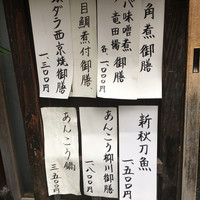 角煮御膳
味噌煮御膳
竜田揚
各一、一〇〇円
目鯛煮付御膳
ダラ西京焼御膳
一三〇〇円
新秋刀魚
一、五〇〇円
あんこう柳川御膳
一、八〇〇円
あんこう鍋
三、五〇〇円